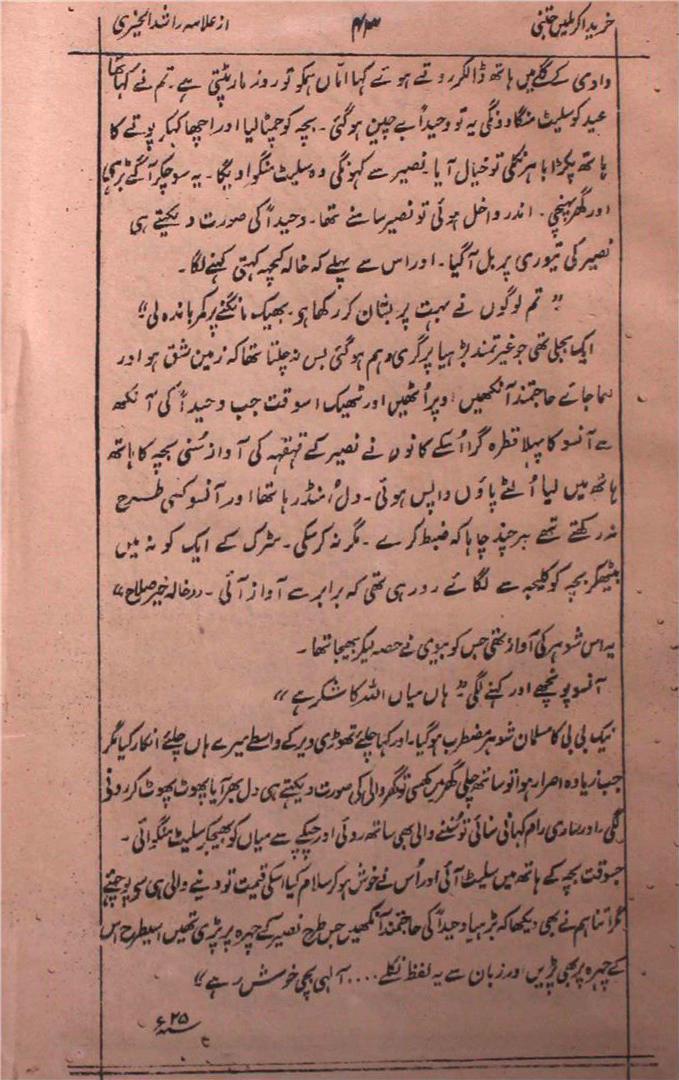 خریدا کر لیں جنبی ۴۳ از علامہ راشد الخیری
دادی کے گلے میں ہاتھ ڈالکر روتے ہوئے کہا اماں ہمکو تو روز مارپٹتی ہے۔ تم نے کہا تھا
عید کو سلیٹ منگا دونگی یہ تو وحیداً بے چین ہوگئی۔ بچہ کو چمٹا لیا اور اچھا کہکر پوتے کا
ہاتھ پکڑا باہر نکلی تو خیال آیا نصیر سے کہونگی وہ سلیٹ منگوا دیگا۔ یہ سوچکر آگے بڑہی
اور گھر پہنچی۔ اندر داخل ہوئی تو نصیر سامنے تھا۔ وحیداً کی صورت دیکہتے ہی
نصیر کی تیوری پر بل آگیا۔ اور اس سے پہلے کہ خالہ کچہہ کہتی کہنے لگا۔
"تم لوگوں نے بہت پریشان کر رکھا ہو بھیک مانگنے پر کمر باندہ لی"
ایک بجلی تھی جو غیرتمند بڑہیا پر گری وہم ہوگئی بس نہ چلتا تھا کہ زمین شق ہو اور
سما جائے حاجتمند آنکھیں اوپر اُٹھیں اور ٹھیک اسوقت جب وحیداً کی آنکھ
سے آنسو کا پہلا قطرہ گرا اُسکے کانوں نے نصیر کے قہقہہ کی آواز سُنی بچہ کا ہاتھ
ہاتھ میں لیا اُلٹے پاؤں واپس ہوئی۔ دل اُمنڈ رہا تھا اور آنسو کسی طرح
نہ رکتے تھے ہر چند چاہا کہ ضبط کرے۔ مگر نہ کر سکی۔ سڑک کے ایک کونہ میں
بیٹھکر بچہ کو کلیجہ سے لگائے رو رہی تھی کہ برابر سے آواز آئی۔ "خالہ خیر صلاح"
یہ اس شوہر کی آواز تھی جس کو بیوی نے حصہ لیکر بھیجا تھا۔
آنسو پونچھے اور کہنے لگی "ہاں میاں اللہ کا شکر ہے"
نیک بی بی کا مسلمان شوہر مضطرب ہوگیا۔ اور کہا چلئے تھوڑی دیر کے واسطے میرے ہاں چلئے انکار کیا مگر
جب زیادہ اصرار ہوا تو ساتھ چلی گھر میں گھسی تو گھر والی کی صورت دیکہتے ہی دل بھر آیا پھوٹ پھوٹ کر رونی
لگی۔ اور ساری رام کہانی سنائی تو سُننے والی بھی ساتھ روئی اور چپکے سے میاں کو بھیجکر سلیٹ منگوائی۔
جسوقت بچہ کے ہاتھ میں سلیٹ آئی اور اُس نے خوش ہوکر سلام کیا اسکی قیمت تو دینے والی ہی سے پوچہئے
مگر اتنا ہم نے بھی دیکھا کہ بڑہیا وحیداً کی حاجتمند آنکھیں جس طرح نصیر کے چہرہ پر پڑی تھیں اسیطرح اس
کے چہرہ پر بھی پڑیں اور زبان سے یہ لفظ نکلے.... الٰہی بچی خوش رہے"
۲۵ سنہ ء